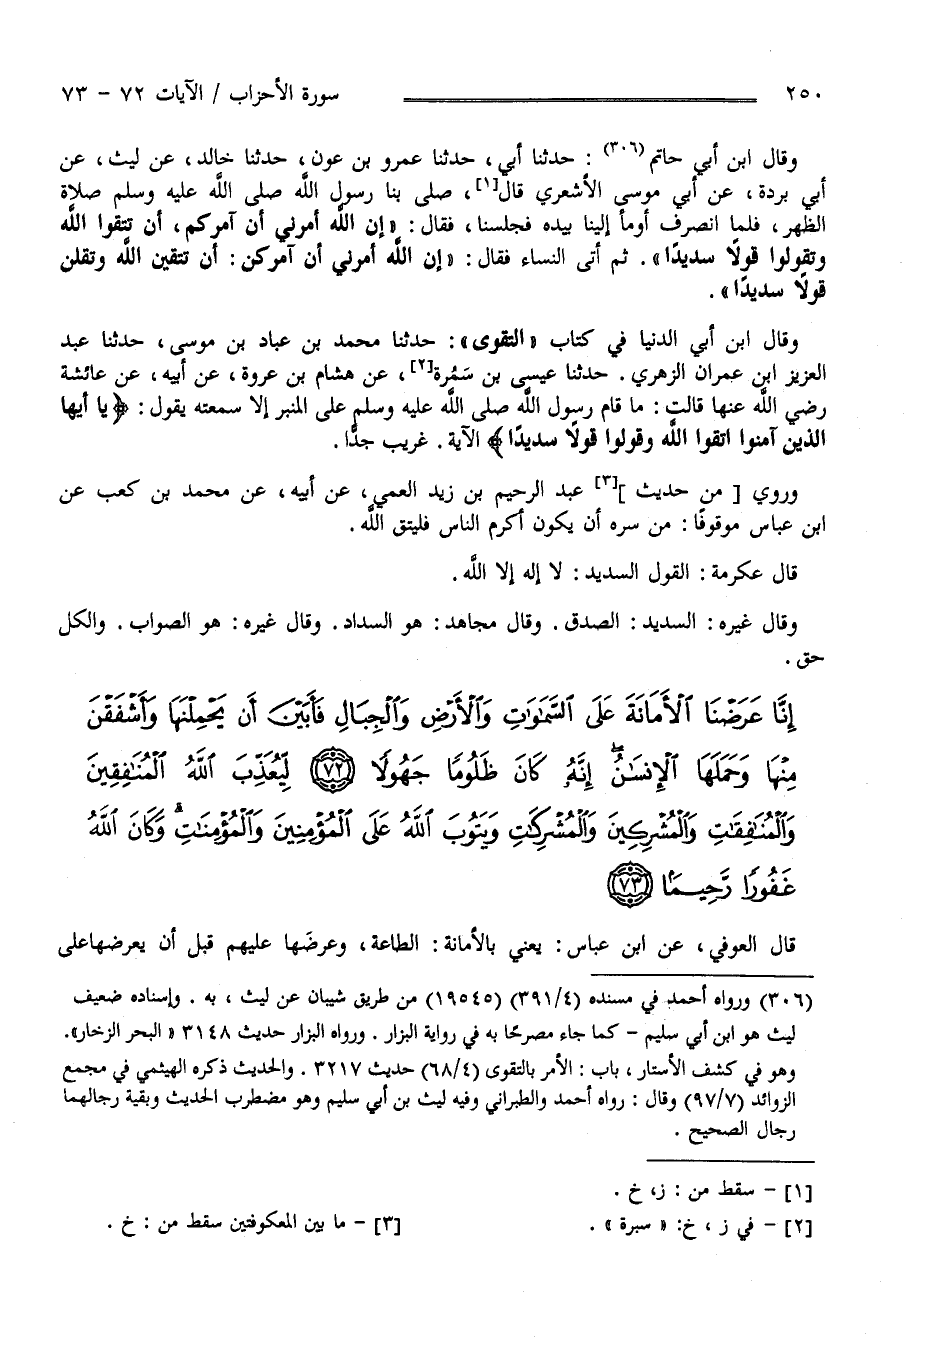 ٢٥٠ سورة الأحزاب / الآيات ٧٢ - ٧٣
وقال ابن أبي حاتم(٣٠٦) : حدثنا أبي ، حدثنا عمرو بن عون ، حدثنا خالد ، عن ليث ، عن
أبي بردة ، عن أبي موسى الأشعري قال[١] ، صلى بنا رسول اللَّه صلى اللَّه عليه وسلم صلاة
الظهر ، فلما انصرف أومأ إلينا بيده فجلسنا ، فقال : « إن اللَّه أمرني أن آمركم ، أن تتقوا اللَّه
وتقولوا قولًا سديدًا » . ثم أتى النساء فقال : « إن اللَّه أمرني أن آمركن : أن تتقين اللَّه وتقلن
قولًا سديدًا » .
وقال ابن أبي الدنيا في كتاب « التقوى » : حدثنا محمد بن عباد بن موسى ، حدثنا عبد
العزيز ابن عمران الزهري . حدثنا عيسى بن سَمُرة[٢] ، عن هشام بن عروة ، عن أبيه ، عن عائشة
رضي اللَّه عنها قالت : ما قام رسول اللَّه صلى اللَّه عليه وسلم على المنبر إلا سمعته يقول : ﴿ يا أيها
الذين آمنوا اتقوا اللَّه وقولوا قولًا سديدًا ﴾ الآية . غريب جدًّا .
وروي [ من حديث ][٣] عبد الرحيم بن زيد العمي ، عن أبيه ، عن محمد بن كعب عن
ابن عباس موقوفًا : من سره أن يكون أكرم الناس فليتق اللَّه .
قال عكرمة : القول السديد : لا إله إلا اللَّه .
وقال غيره : السديد : الصدق . وقال مجاهد : هو السداد . وقال غيره : هو الصواب . والكل
حق .
إِنَّا عَرَضْنَا ٱلْأَمَانَةَ عَلَى ٱلسَّمَٰوَٰتِ وَٱلْأَرْضِ وَٱلْجِبَالِ فَأَبَيْنَ أَن يَحْمِلْنَهَا وَأَشْفَقْنَ
مِنْهَا وَحَمَلَهَا ٱلْإِنسَٰنُ ۖ إِنَّهُۥ كَانَ ظَلُومًا جَهُولًا ٧٢ لِّيُعَذِّبَ ٱللَّهُ ٱلْمُنَٰفِقِينَ
وَٱلْمُنَٰفِقَٰتِ وَٱلْمُشْرِكِينَ وَٱلْمُشْرِكَٰتِ وَيَتُوبَ ٱللَّهُ عَلَى ٱلْمُؤْمِنِينَ وَٱلْمُؤْمِنَٰتِ ۗ وَكَانَ ٱللَّهُ
غَفُورًا رَّحِيمًا ٧٣
قال العوفي ، عن ابن عباس : يعني بالأمانة : الطاعة ، وعرضَها عليهم قبل أن يعرضهاعلى
(٣٠٦) ورواه أحمد في مسنده (٣٩١/٤) (١٩٥٤٥) من طريق شيبان عن ليث ، به . وإسناده ضعيف
ليث هو ابن أبي سليم - كما جاء مصرحًا به في رواية البزار . ورواه البزار حديث ٣١٤٨ « البحر الزخار».
وهو في كشف الأستار ، باب : الأمر بالتقوى (٦٨/٤) حديث ٣٢١٧ . والحديث ذكره الهيثمي في مجمع
الزوائد (٩٧/٧) وقال : رواه أحمد والطبراني وفيه ليث بن أبي سليم وهو مضطرب الحديث وبقية رجالهما
رجال الصحيح .
[١] - سقط من : ز، خ .
[٢] - في ز ، خ: « سبرة » . [٣] - ما بين المعكوفتين سقط من : خ .